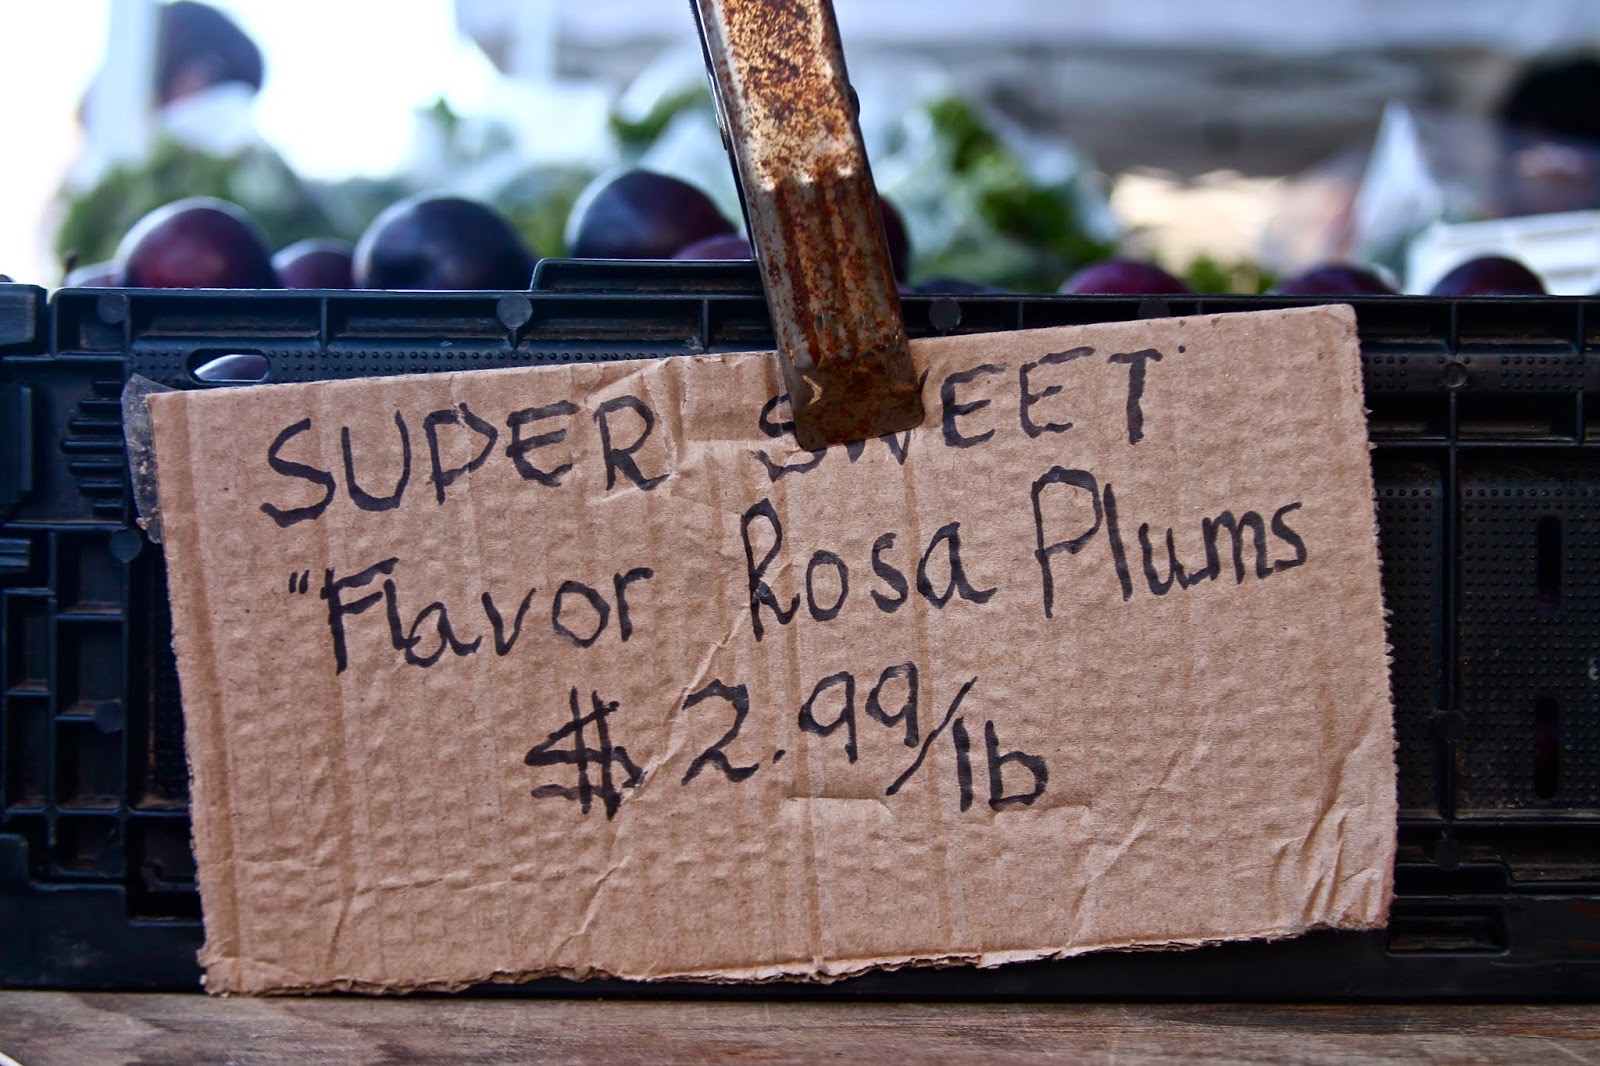 SUPER SWEET
"Flavor Rosa Plums
$2.99/lb